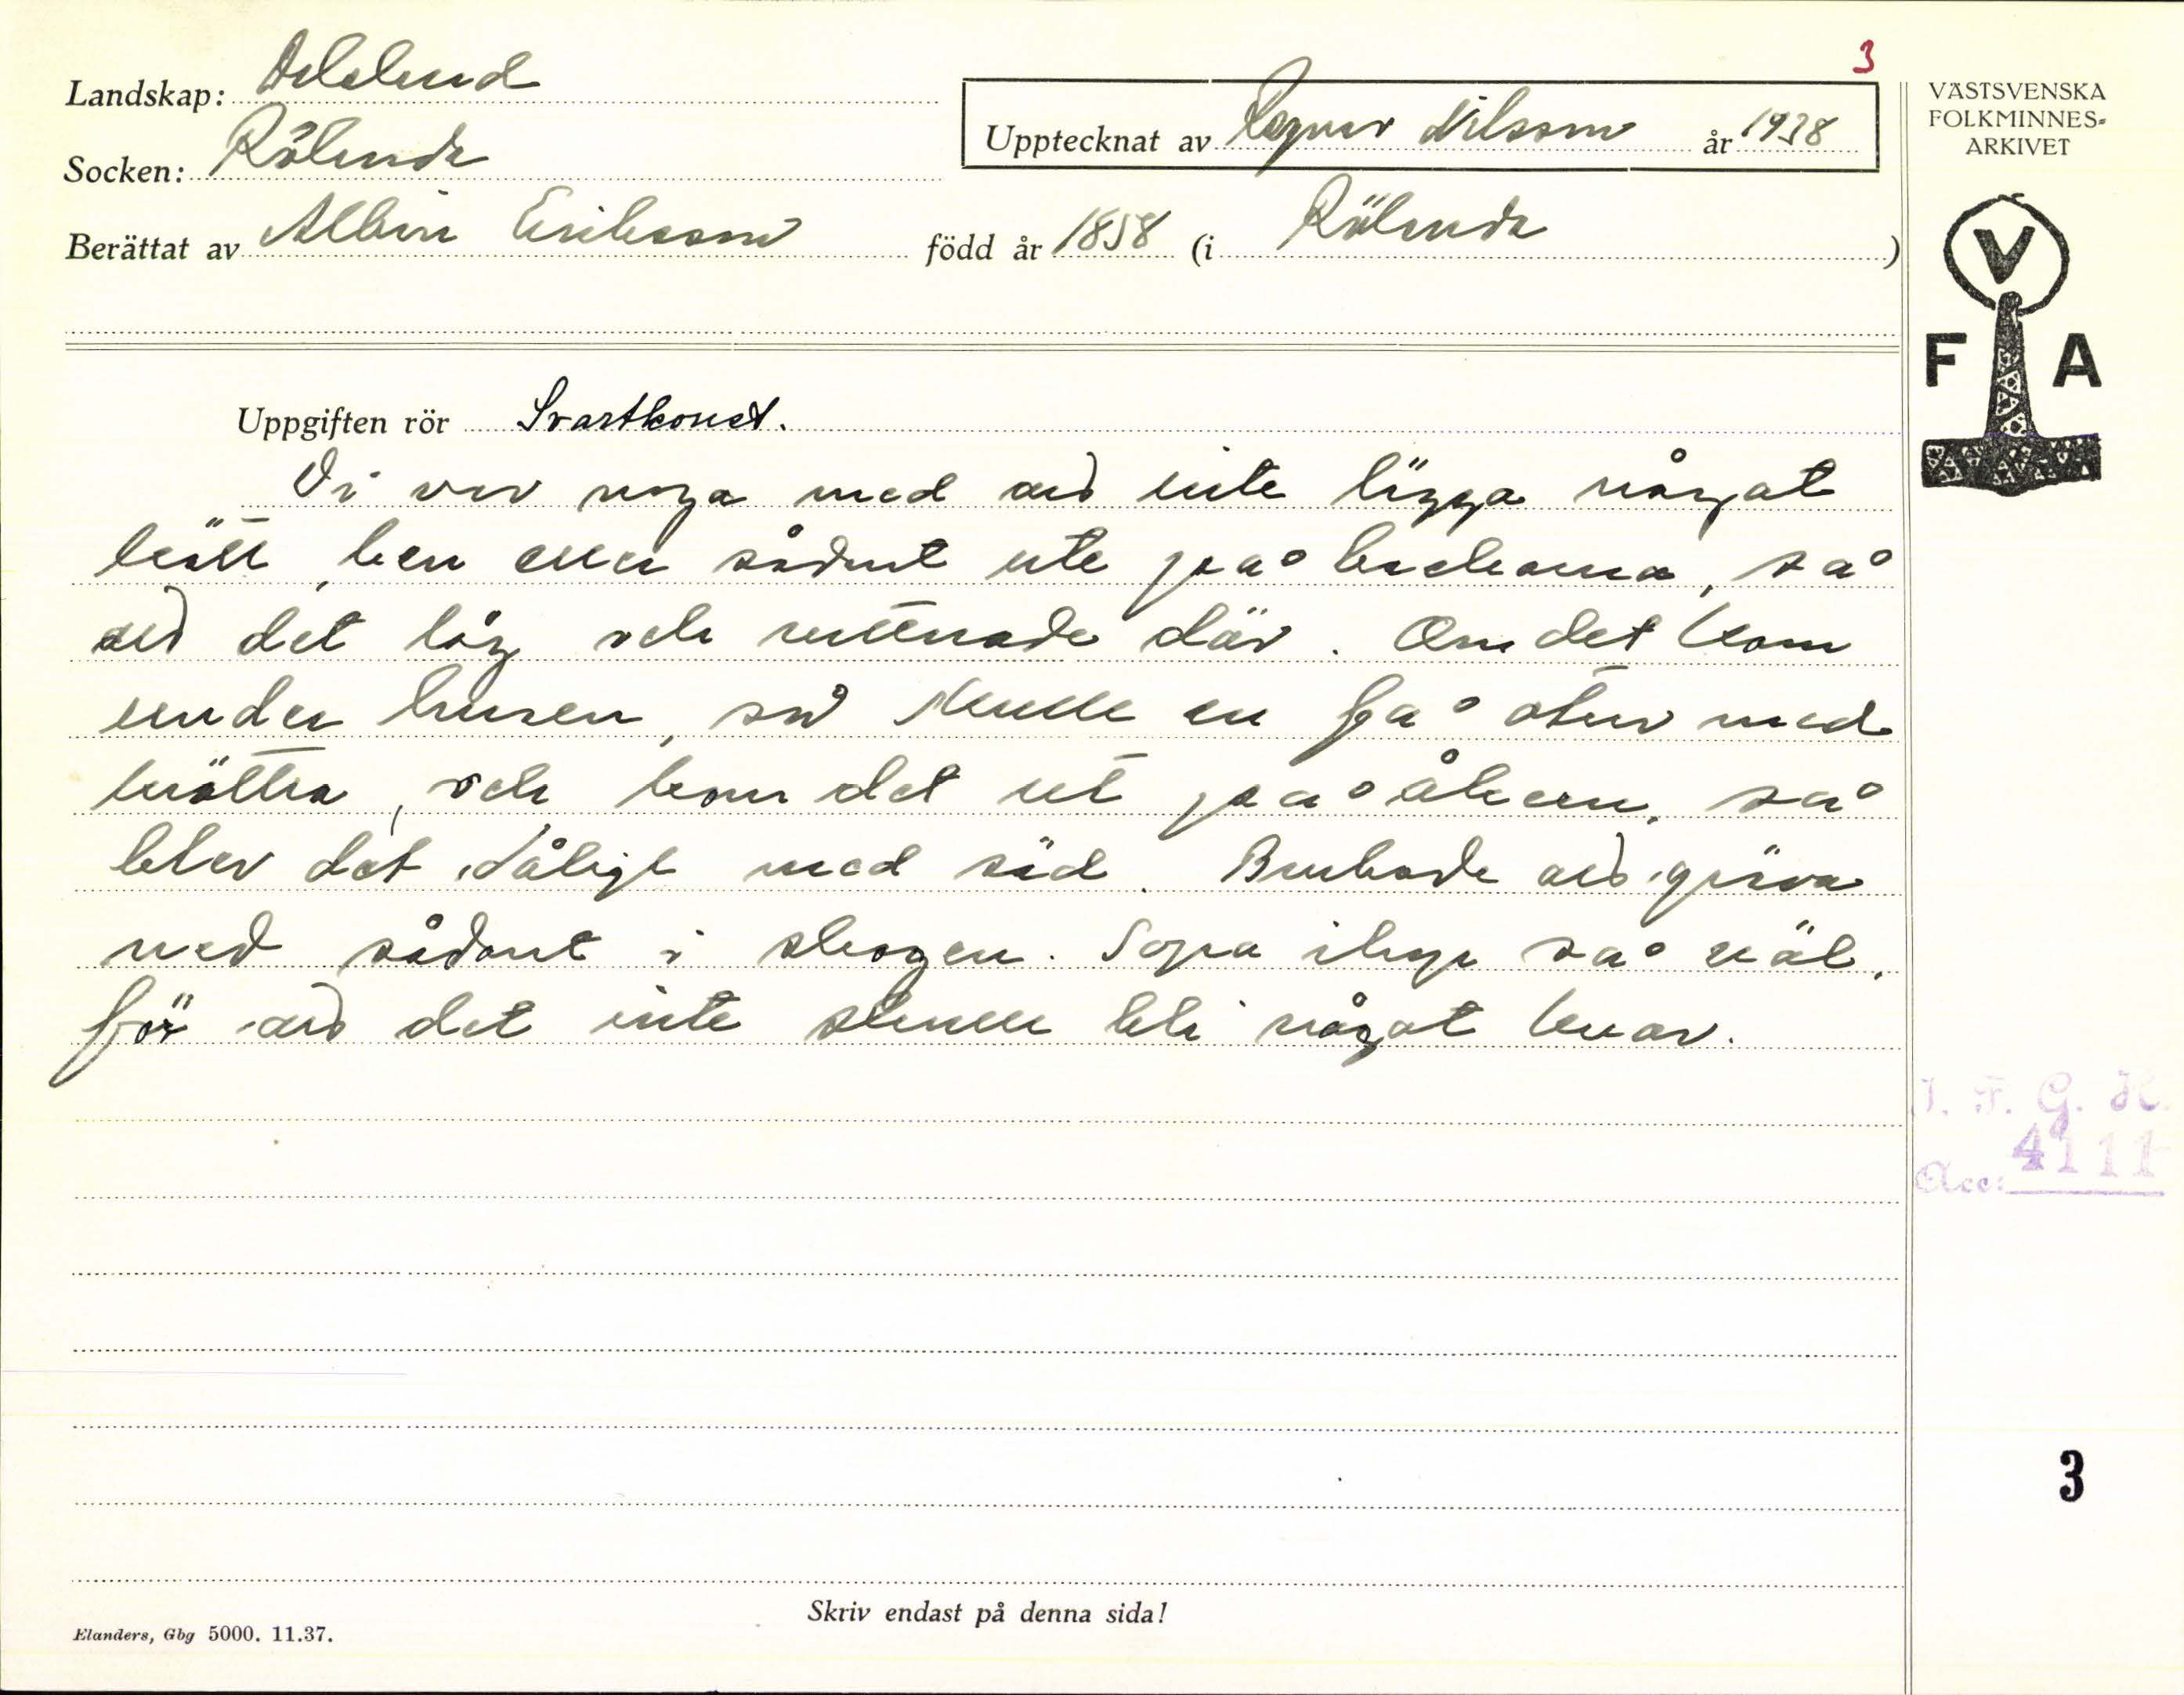 3
Landskap: Dalsland
Socken: Rölanda
Upptecknat av Ragnar Nilsson år 1938
Berättat av Albin Eriksson född år 1858 (i Rölanda)
VÄSTSVENSKA
FOLKMINNES-
ARKIVET
V
F A
Uppgiften rör Svartkonst.
Vi var noga med att inte lägga något
kött, ben eller sådant ute på backarna, så
att det låg och ruttnade där. Om det kom
under husen, så skulle en få otur med
råtter, och kom det ut på åkern, så
blev det dåligt med säd. Brukade att gräva
ned sådant i skogen. Sopa ihop så väl,
för att det inte skulle bli något kvar.
I. F. G. H.
Acc: 4111
3
Skriv endast på denna sida!
Elanders, Gbg 5000. 11.37.